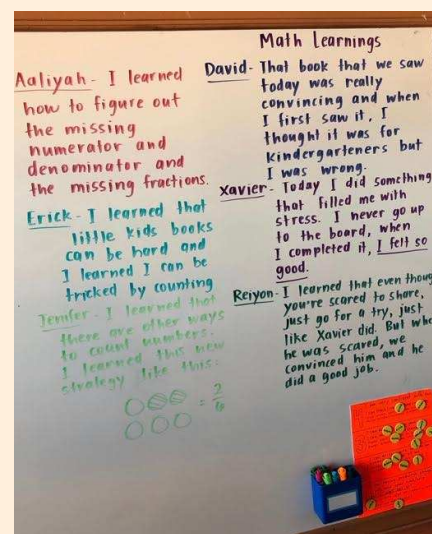 Math Learnings
Aaliyah - I learned
how to figure out
the missing
numerator and
denominator and
the missing fractions.
Erick - I learned that
little kids books
can be hard and
I learned I can be
tricked by counting
Jenifer - I learned that
there are other ways
to count numbers.
I learned this new
strategy like this:
= 2/6
David - That book that we saw
today was really
convincing and when
I first saw it, I
thought it was for
kindergarteners but
I was wrong.
Xavier - Today I did something
that filled me with
stress. I never go up
to the board, when
I completed it, I felt so
good.
Reiyon - I learned that even thoug
you're scared to share,
just go for a try, just
like Xavier did. But whe
he was scared, we
convinced him and he
did a good job.